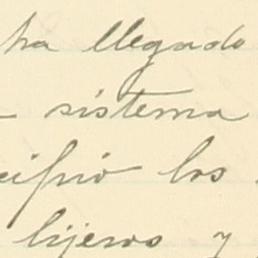 ha llegado
sistema
cipio los
lijeros y